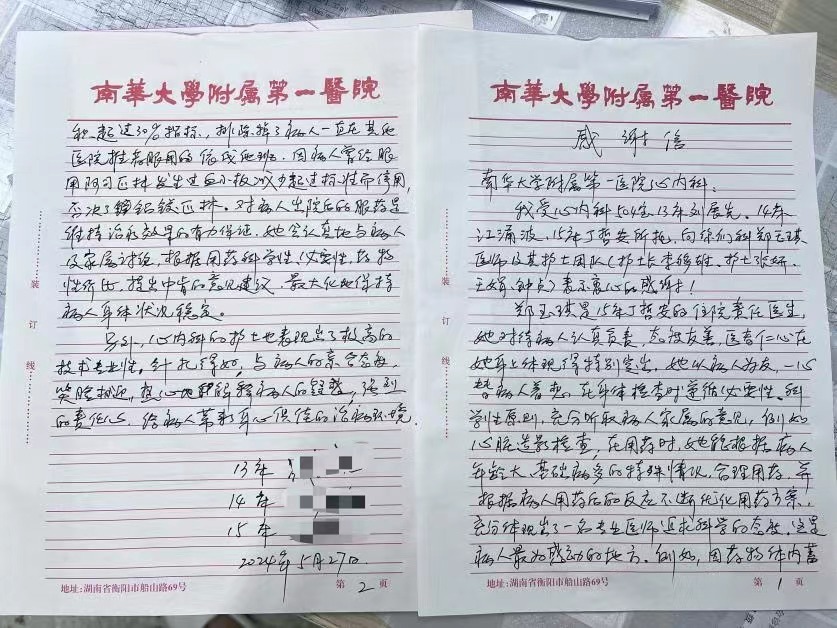 南華大學附属第一醫院
感谢信
南华大学附属第一医院心内科:
我受心内科504室13床刘展先、14床
江涌波、15床丁哲安所托,向你们科郑玉琪
医师及其护士团队(护士长李 、护士张妍、
表示衷心的感谢!
郑玉琪是15床丁哲安的住院责任医生,
她对待病人认真负责,态度友善,医者仁心在
她身上体现得特别突出。她以病人为友,一心
替病人着想,在身体检查时遵循必要性、科
学性原则,充分听取病人家属的意见,例如
心脏造影检查,在用药时,她能根据病人
年龄大、基础病多的特殊情况,合理用药,并
根据病人用药后的反应不断优化用药方案,
充分体现出了一名专业医师追求科学的态度,这是
病人最为感动的地方。例如,因药物体内蓄
地址:湖南省衡阳市船山路69号
第1页
南華大學附属第一醫院
积超过30%指标,排除掉了病人一直在其他
医院推荐服用的依伐他班,因病人曾经服
用阿司匹林发生过血小板减少超过极性而停用,
匹林。对病人出院后的服药是
维持治疗效果的有力保证,她会认真地与病人
及家属讨论,根据用药科学性、必要性、药物
性价比,提出中肯的意见建议,最大化地保持
病人身体状况稳定。
另外,心内科的护士也表现出了极高的
技术专业性。针扎得好,与病人的亲合态度,
笑脸相迎,热心地 解释病人的疑惑,强烈
的责任心,给病人带来身心俱佳的治病环境。
13床
14床
15床
2024年5月27日
地址:湖南省衡阳市船山路69号
第2页
装
订
线